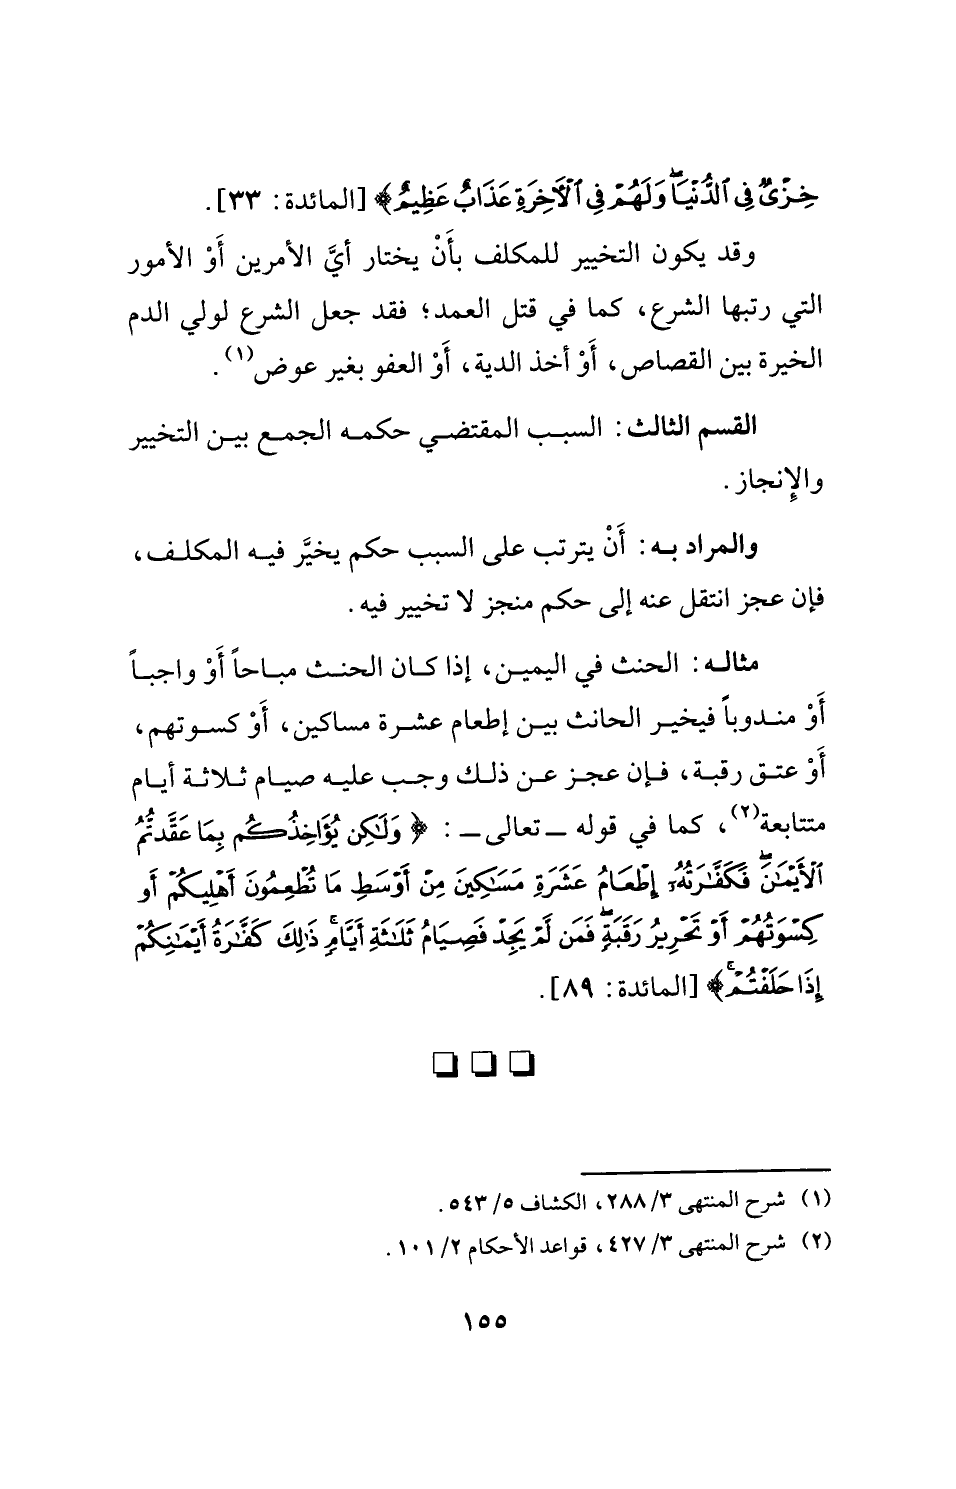 خِزْىٌ فِى ٱلدُّنْيَا ۖ وَلَهُمْ فِى ٱلْأَخِرَةِ عَذَابٌ عَظِيمٌ ﴾ [المائدة: ٣٣].
وقد يكون التخيير للمكلف بأَنْ يختار أيَّ الأمرين أَوْ الأمور
التي رتبها الشرع، كما في قتل العمد؛ فقد جعل الشرع لولي الدم
الخيرة بين القصاص، أَوْ أخذ الدية، أَوْ العفو بغير عوض(١).
القسم الثالث: السبب المقتضي حكمه الجمع بين التخيير
والإِنجاز.
والمراد به: أَنْ يترتب على السبب حكم يخيَّر فيه المكلف،
فإن عجز انتقل عنه إلى حكم منجز لا تخيير فيه.
مثاله: الحنث في اليمين، إذا كان الحنث مباحاً أَوْ واجباً
أَوْ مندوباً فيخير الحانث بين إطعام عشرة مساكين، أَوْ كسوتهم،
أَوْ عتق رقبة، فإن عجز عن ذلك وجب عليه صيام ثلاثة أيام
متتابعة(٢)، كما في قوله ـ تعالى ـ: ﴿ وَلَٰكِن يُؤَاخِذُكُم بِمَا عَقَّدتُّمُ
ٱلْأَيْمَٰنَ ۖ فَكَفَّٰرَتُهُۥٓ إِطْعَامُ عَشَرَةِ مَسَٰكِينَ مِنْ أَوْسَطِ مَا تُطْعِمُونَ أَهْلِيكُمْ أَو
كِسْوَتُهُمْ أَوْ تَحْرِيرُ رَقَبَةٍ ۖ فَمَن لَّمْ يَجِدْ فَصِيَامُ ثَلَٰثَةِ أَيَّامٍ ۚ ذَٰلِكَ كَفَّٰرَةُ أَيْمَٰنِكُمْ
إِذَا حَلَفْتُمْ ۚ ﴾ [المائدة: ٨٩].
(١) شرح المنتهى ٣/ ٢٨٨، الكشاف ٥/ ٥٤٣.
(٢) شرح المنتهى ٣/ ٤٢٧، قواعد الأحكام ٢/ ١٠١.
١٥٥